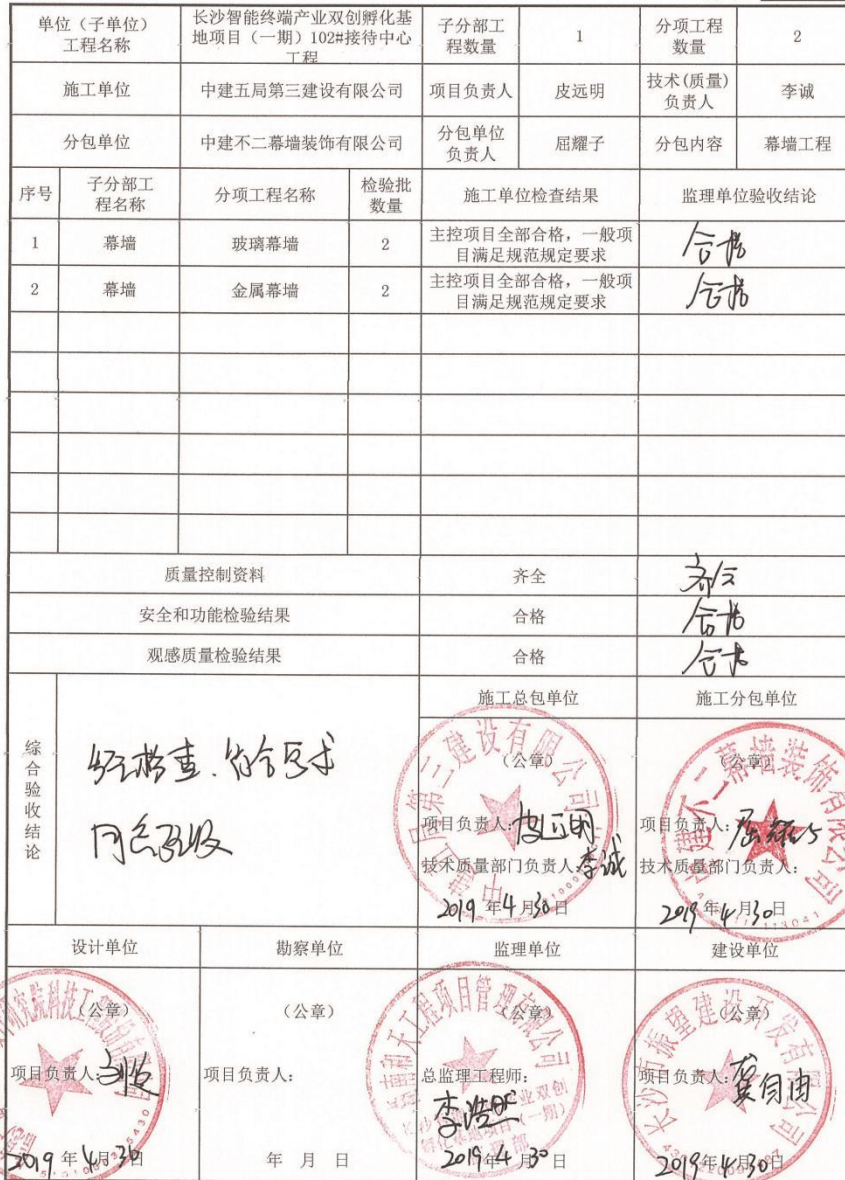 单位（子单位）
工程名称
长沙智能终端产业双创孵化基
地项目（一期）102#接待中心
工程
子分部工
程数量
1
分项工程
数量
2
施工单位
中建五局第三建设有限公司
项目负责人
皮远明
技术(质量)
负责人
李诚
分包单位
中建不二幕墙装饰有限公司
分包单位
负责人
屈耀子
分包内容
幕墙工程
序号
子分部工
程名称
分项工程名称
检验批
数量
施工单位检查结果
监理单位验收结论
1
幕墙
玻璃幕墙
2
主控项目全部合格，一般项
目满足规范规定要求
合格
2
幕墙
金属幕墙
2
主控项目全部合格，一般项
目满足规范规定要求
合格
质量控制资料
齐全
齐全
安全和功能检验结果
合格
合格
观感质量检验结果
合格
合格
综合验收结论
经检查，符合要求
同意验收
施工总包单位
（公章）
项目负责人：皮远明
技术质量部门负责人：李诚
2019年4月30日
施工分包单位
（公章）
项目负责人：屈耀子
技术质量部门负责人：
2019年4月30日
设计单位
（公章）
项目负责人：
2019年4月30日
勘察单位
（公章）
项目负责人：
年 月 日
监理单位
（公章）
总监理工程师：
李浩然
2019年4月30日
建设单位
（公章）
项目负责人：龚自由
2019年4月30日
第三建设有限公司
中建不二幕墙装饰有限公司
研究院科技工程
湖南和天工程项目管理有限公司
长沙智能终端产业双创
孵化基地项目（一期）
监理部
长沙市振望建设开发有限公司